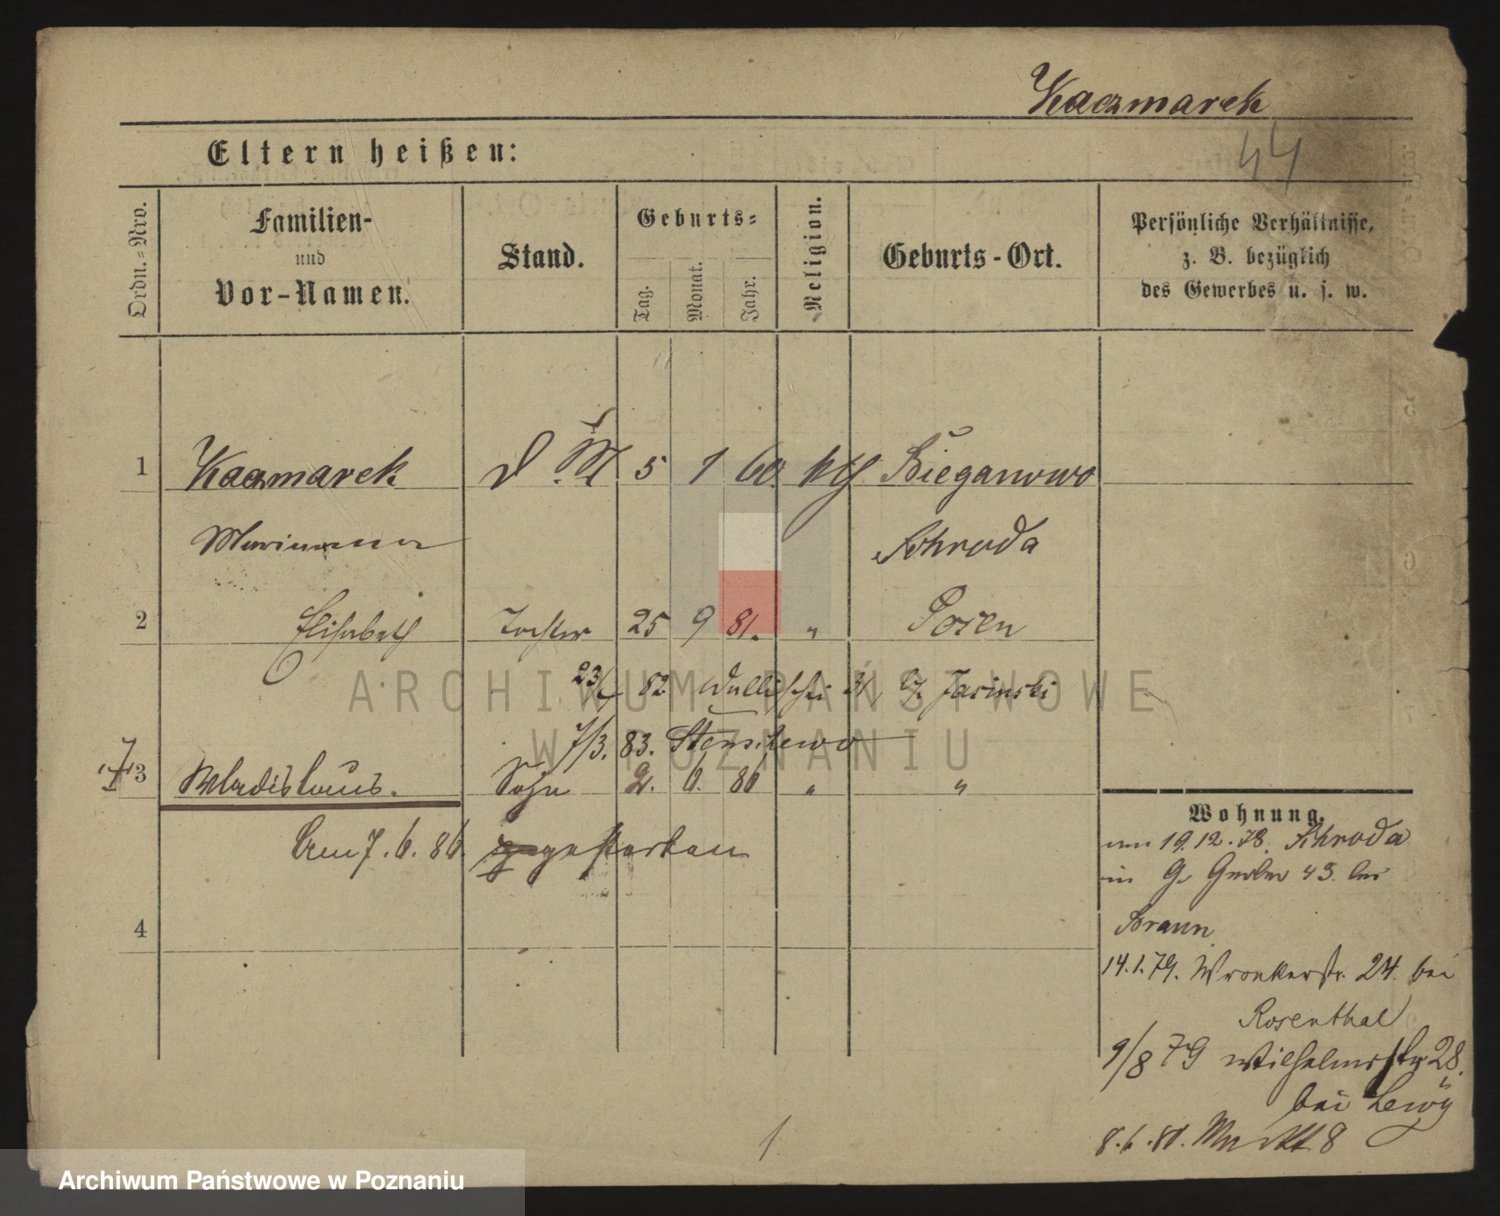 Kaczmarek
44
Eltern heißen:
Ordn.-Nro.
Familien-
und
Vor-Namen.
Stand.
Geburts-
Tag.
Monat.
Jahr.
Religion.
Geburts-Ort.
Persönliche Verhältnisse,
z. B. bezüglich
des Gewerbes u. s. w.
1 Kaczmarek D. M. 5 1 60 kth Bieganowo
Marianna Schroda
2 Elisabeth Tochter 25 9 81. " Posen
23/6 82 Wallischei 31 b/ Jasinski
7/3. 83. Stenschewo
† 3 Wladislaus. Sohn 2. 6. 86 " "
Am 7. 6. 86. gestorben
4
Wohnung.
um 19.12.78. Schroda
in Gr. Gerber 43. bei
Braun
14.1.79. Wronkerstr. 24. bei
Rosenthal
9/8 79 Wilhelmsstr 28.
bei Lewy
8.6.80. Markt 8
1
ARCHIWUM PAŃSTWOWE
W POZNANIU
Archiwum Państwowe w Poznaniu